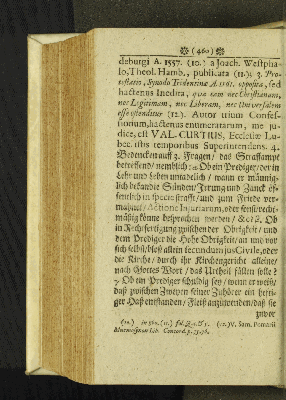 ❀ (460) ❀
deburgi A. 1557. (10.) a Joach. Westpha-
lo, Theol. Hamb., publicata (11.); 3. Pro-
testatio, Synodo Tridentinæ A. 1561. opposita, sed
hactenus Inedita, qua eam nec Christianam,
nec Legitimam, nec Liberam, nec Universalem
esse ostenditur (12.) Autor trium Confes-
sionum, hactenus enumeratarum, me ju-
dice, est VAL. CURTIUS, Ecclesiæ Lu-
bec. istis temporibus Superintendens. 4.
Bedencken auff 3. Fragen / das Straffampt
betreffend / nemblich: Ob ein Prediger / der in
Lehr und Leben untadelich / wann er männig-
lich bekandte Sünden / Irrung und Zanck öf-
fentlich in specie strafft / und zum Friede ver-
mahnet / Actione Injuriarum, oder sonst recht-
mäßig könne besprochen werden / &c. 6. Ob
in Rechtfertigung zwischen der Obrigkeit / und
dem Prediger die Hohe Obrigkeit / an und vor
sich selbst / bloß allein secundum jus Civile, oder
die Kirche / durch ihr Kirchengericht alleine /
nach Gottes Wort / das Urtheil fällen solle?
7. Ob ein Prediger schuldig sey / wenn er weiß /
daß zwischen Zweyen seiner Zuhörer ein hefti-
ger Haß entstanden / Fleiß anzuwenden / daß sie
zuvor
(10.) in 8bo. (11.) fol. (12.) V. Sam. Pomarii
Concord. p. 75. 76.